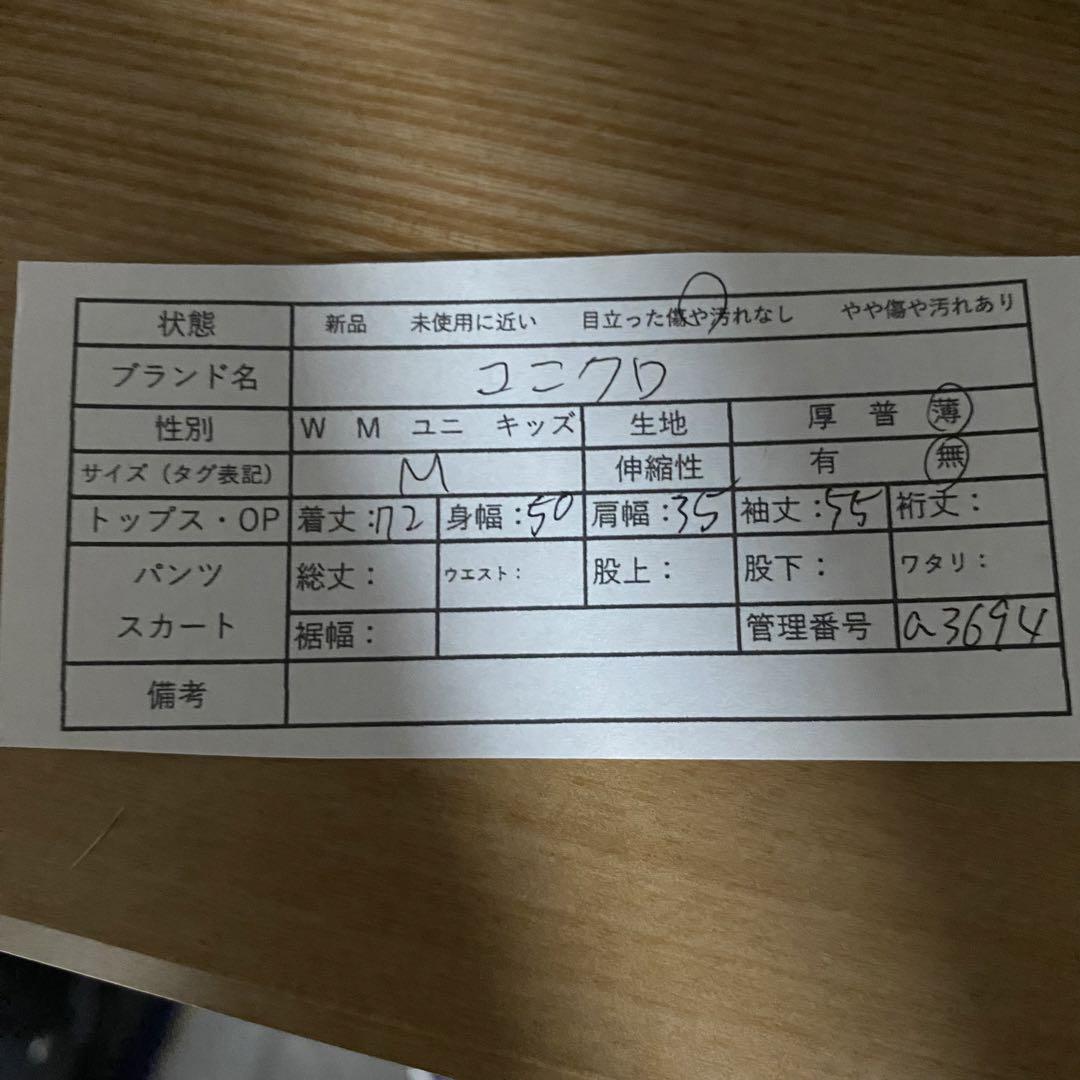 状態 新品 未使用に近い 目立った傷や汚れなし やや傷や汚れあり
ブランド名 ユニクロ
性別 W M ユニ キッズ 生地 厚 普 薄
サイズ（タグ表記） M 伸縮性 有 無
トップス・OP 着丈：72 身幅：50 肩幅：35 袖丈：55 裄丈：
パンツ 総丈： ウエスト： 股上： 股下： ワタリ：
スカート 裾幅： 管理番号 a3694
備考